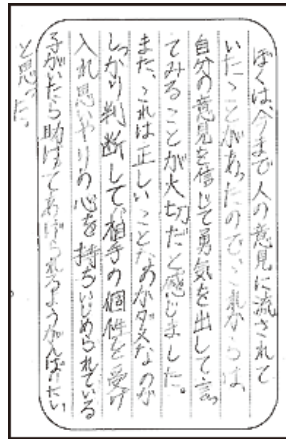 ぼくは、今まで人の意見に流されて
いたことがあったので、これからは、
自分の意見を信じて勇気を出して言っ
てみることが大切だと感じました。
また、これは正しいことなのかダメなのか
しっかり判断して、相手の個性を受け
入れ思いやりの心を持ちいじめられている
子がいたら助けてあげられるようがんばりたい
と思った。